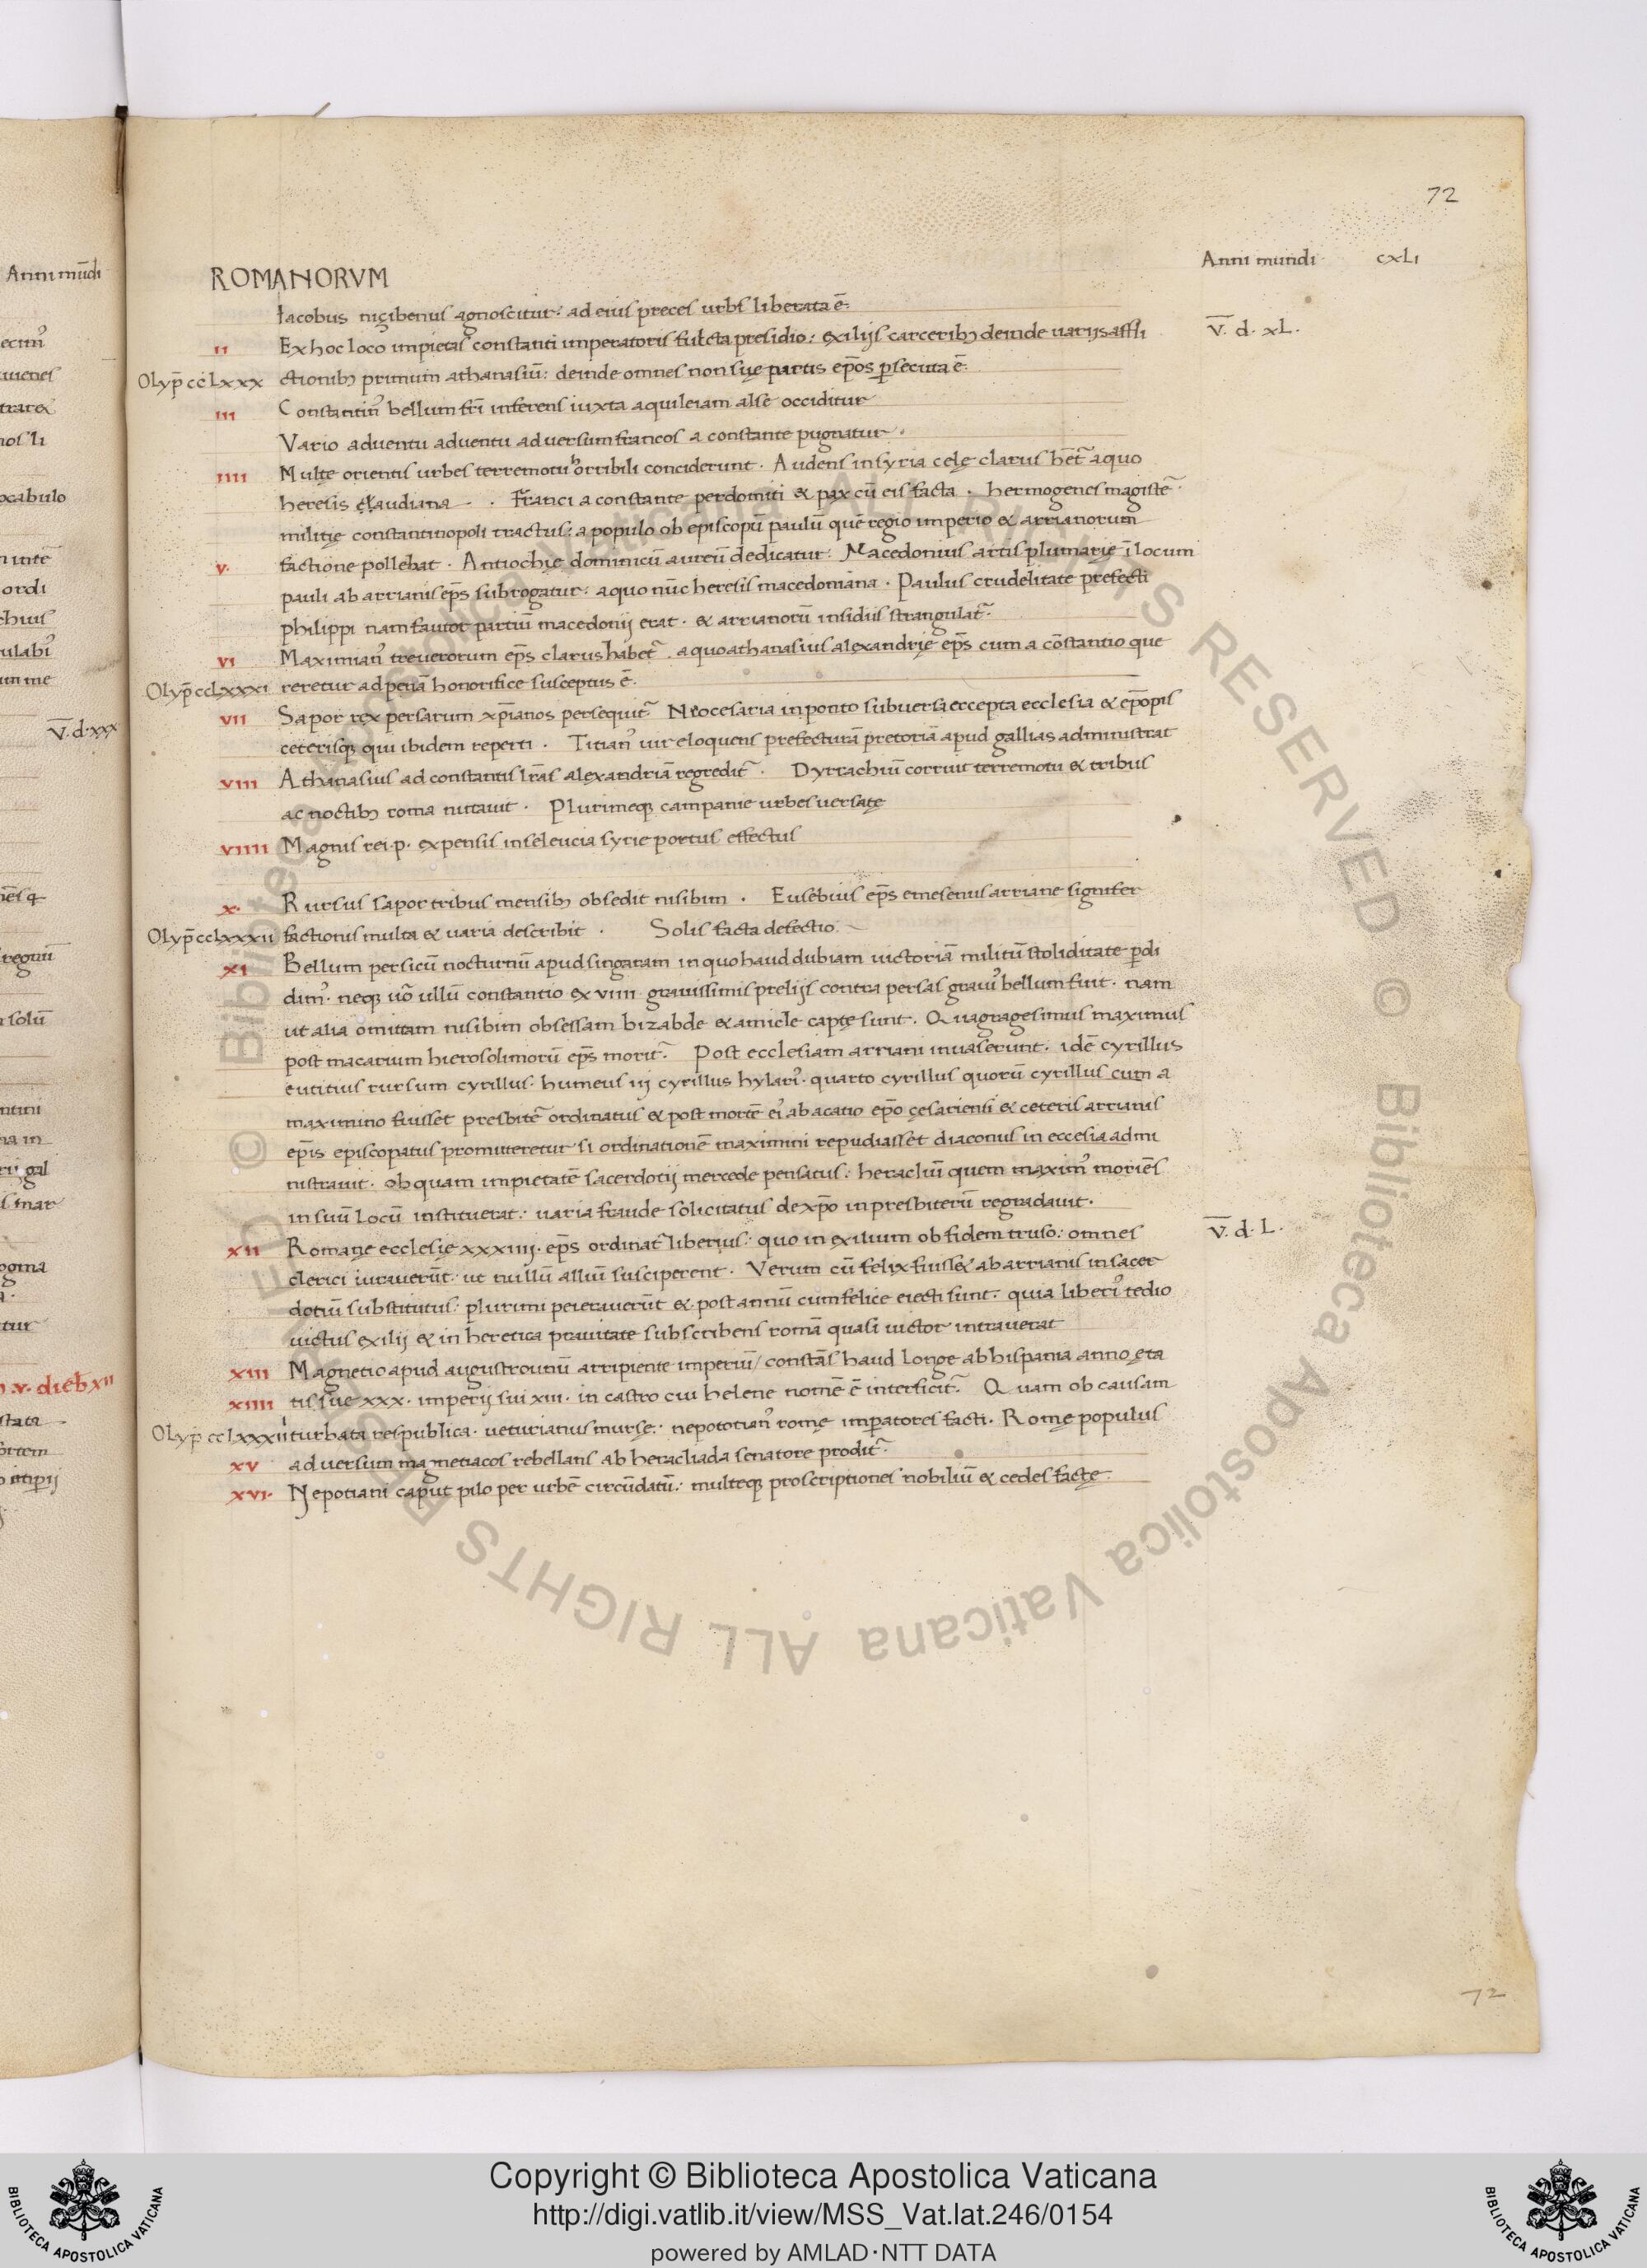 72
Anni mundi cxLi
ROMANORVM
Iacobus niçibenus agnoscitur: ad eius preces urbs liberata ē.
V̄. d. xL.
ii Ex hoc loco impietas constanti imperatoris fulcta presidio: exilijs carcerib; deinde uarijs affli
Olyp̄ ccLxxx ctionib; primum athanasiū: deinde omnes non sue partis ep̄os p̱secuta ē.
iii Constantin᾽ bellum fr̄i inferens iuxta aquileiam alse occiditur
Vario aduentu aduentu aduersum francos a constante pugnatur.
iiii Multe orientis urbes terremotu horribili conciderunt. Audens in syria cele clarus hēt᷑ a quo
heresis claudiana. Franci a constante perdomiti & pax cū eis facta. hermogenes magiste᷑
militię constantinopoli tractus: a populo ob episcopū paulū quē regio imperio & arrianorum
v. factione pollebat. Antiochię dominicū aureū dedicatur: Macedonius artis plumarię ī locum
pauli ab arrianis ep̄s subrogatur: a quo nūc heresis macedoniana. Paulus crudelitate prefecti
philippi nam fautor partiū macedonij erat. & arrianorū insidiis strangulat᷑
vi Maximian᾽ treuerorum ep̄s clarus habet᷑. a quo athanasius alexandrię ep̄s cum a cōstantio que
Olyp̄ ccLxxxi reretur ad penā honorifice susceptus ē.
vii Sapor rex persarum xp̄ianos persequit᷑ Neocesaria in ponto subuersa eccepta ecclesia & ep̄opis
ceterisq; qui ibidem reperti. Titian᾽ uir eloquens prefecturā pretoriā apud gallias administrat
viii Athanasius ad constantis lr̄as alexandriā regredit᷑. Dyrrachiū corruit terremotu & tribus
ac noctib; roma nutauit. Plurimeq; campanie urbes uersate
viiii Magnis rei.p. expensis in seleucia syrie portus effectus
x. Rursus sapor tribus mensib; obsedit nisibim. Eusebius ep̄s emesenus arriane signifer
Olyp̄ ccLxxxii factionis multa & uaria describit. Solis facta defectio.
xi Bellum persicū nocturnū apud singaram in quo haud dubiam uictoriā militū stoliditate p̱di
dim᾽. neq; uō ullū constantio ex viiii grauissimis prelijs contra persas graui᾽ bellum fuit. nam
ut alia omittam nisibim obsessam bizabde & amicle capte sunt. Quagragesimus maximus
post macarium hierosolimorū ep̄s morit᷑. Post ecclesiam arriani inuaserunt. idē cyrillus
eutitius rursum cyrillus. humeus iij cyrillus hylari᾽. quarto cyrillus quorū cyrillus cum a
maximino fuisset presbite᷑ ordinatus & post mortē ei᾽ ab acatio ep̄o çesariensi & ceteris arrianis
ep̄is episcopatus promitteretur si ordinationē maximini repudiasset diaconus in eccesia admi
nistrauit. ob quam impietatē sacerdotij mercede pensatus: heracliū quem maxim᾽ moriēs
in suū Locū instituerat: uaria fraude solicitatus de xp̄o in presbiterū regradauit.
V̄. d. L.
xii Romane ecclesię xxxiiij. ep̄s ordinat᷑ liberius: quo in exilium ob fidem truso: omnes
clerici iurauerūt: ut nullū alliū susciperent. Verum cū felix fuiss& ab arrianis in sacer
dotiū substitutus: plurimi peierauerūt & post annū cum felice eiecti sunt: quia liberi᾽ tedio
uictus exilij & in heretica prauitate subscribens romā quasi uictor intrauerat
xiii Magnetio apud augustrounū arripiente imperiū/ constās haud Longe ab hispania anno ęta
xiiii tis sue xxx. imperij sui xiii. in castro cui helene nomē ē interficit᷑. Quam ob causam
Olyp̄ cclxxxiii turbata respublica. ueturianus murse: nepototian᾽ rome imp̱atores facti. Rome populus
xv aduersum magnetiacos rebellans ab heracliada senatore prodit᷑.
xvi. Nepotiani caput pilo per urbē circūdatū: multeq; proscriptiones nobiliū & cedes facte
72
Anni mūdi
ocabulo
V̄. d. xxx
solū
Copyright © Biblioteca Apostolica Vaticana
http://digi.vatlib.it/view/MSS_Vat.lat.246/0154
powered by AMLAD·NTT DATA
BIBLIOTECA APOSTOLICA VATICANA
BIBLIOTECA APOSTOLICA VATICANA
© Biblioteca Apostolica Vaticana ALL RIGHTS RESERVED © Biblioteca Apostolica Vaticana ALL RIGHTS RESERVED